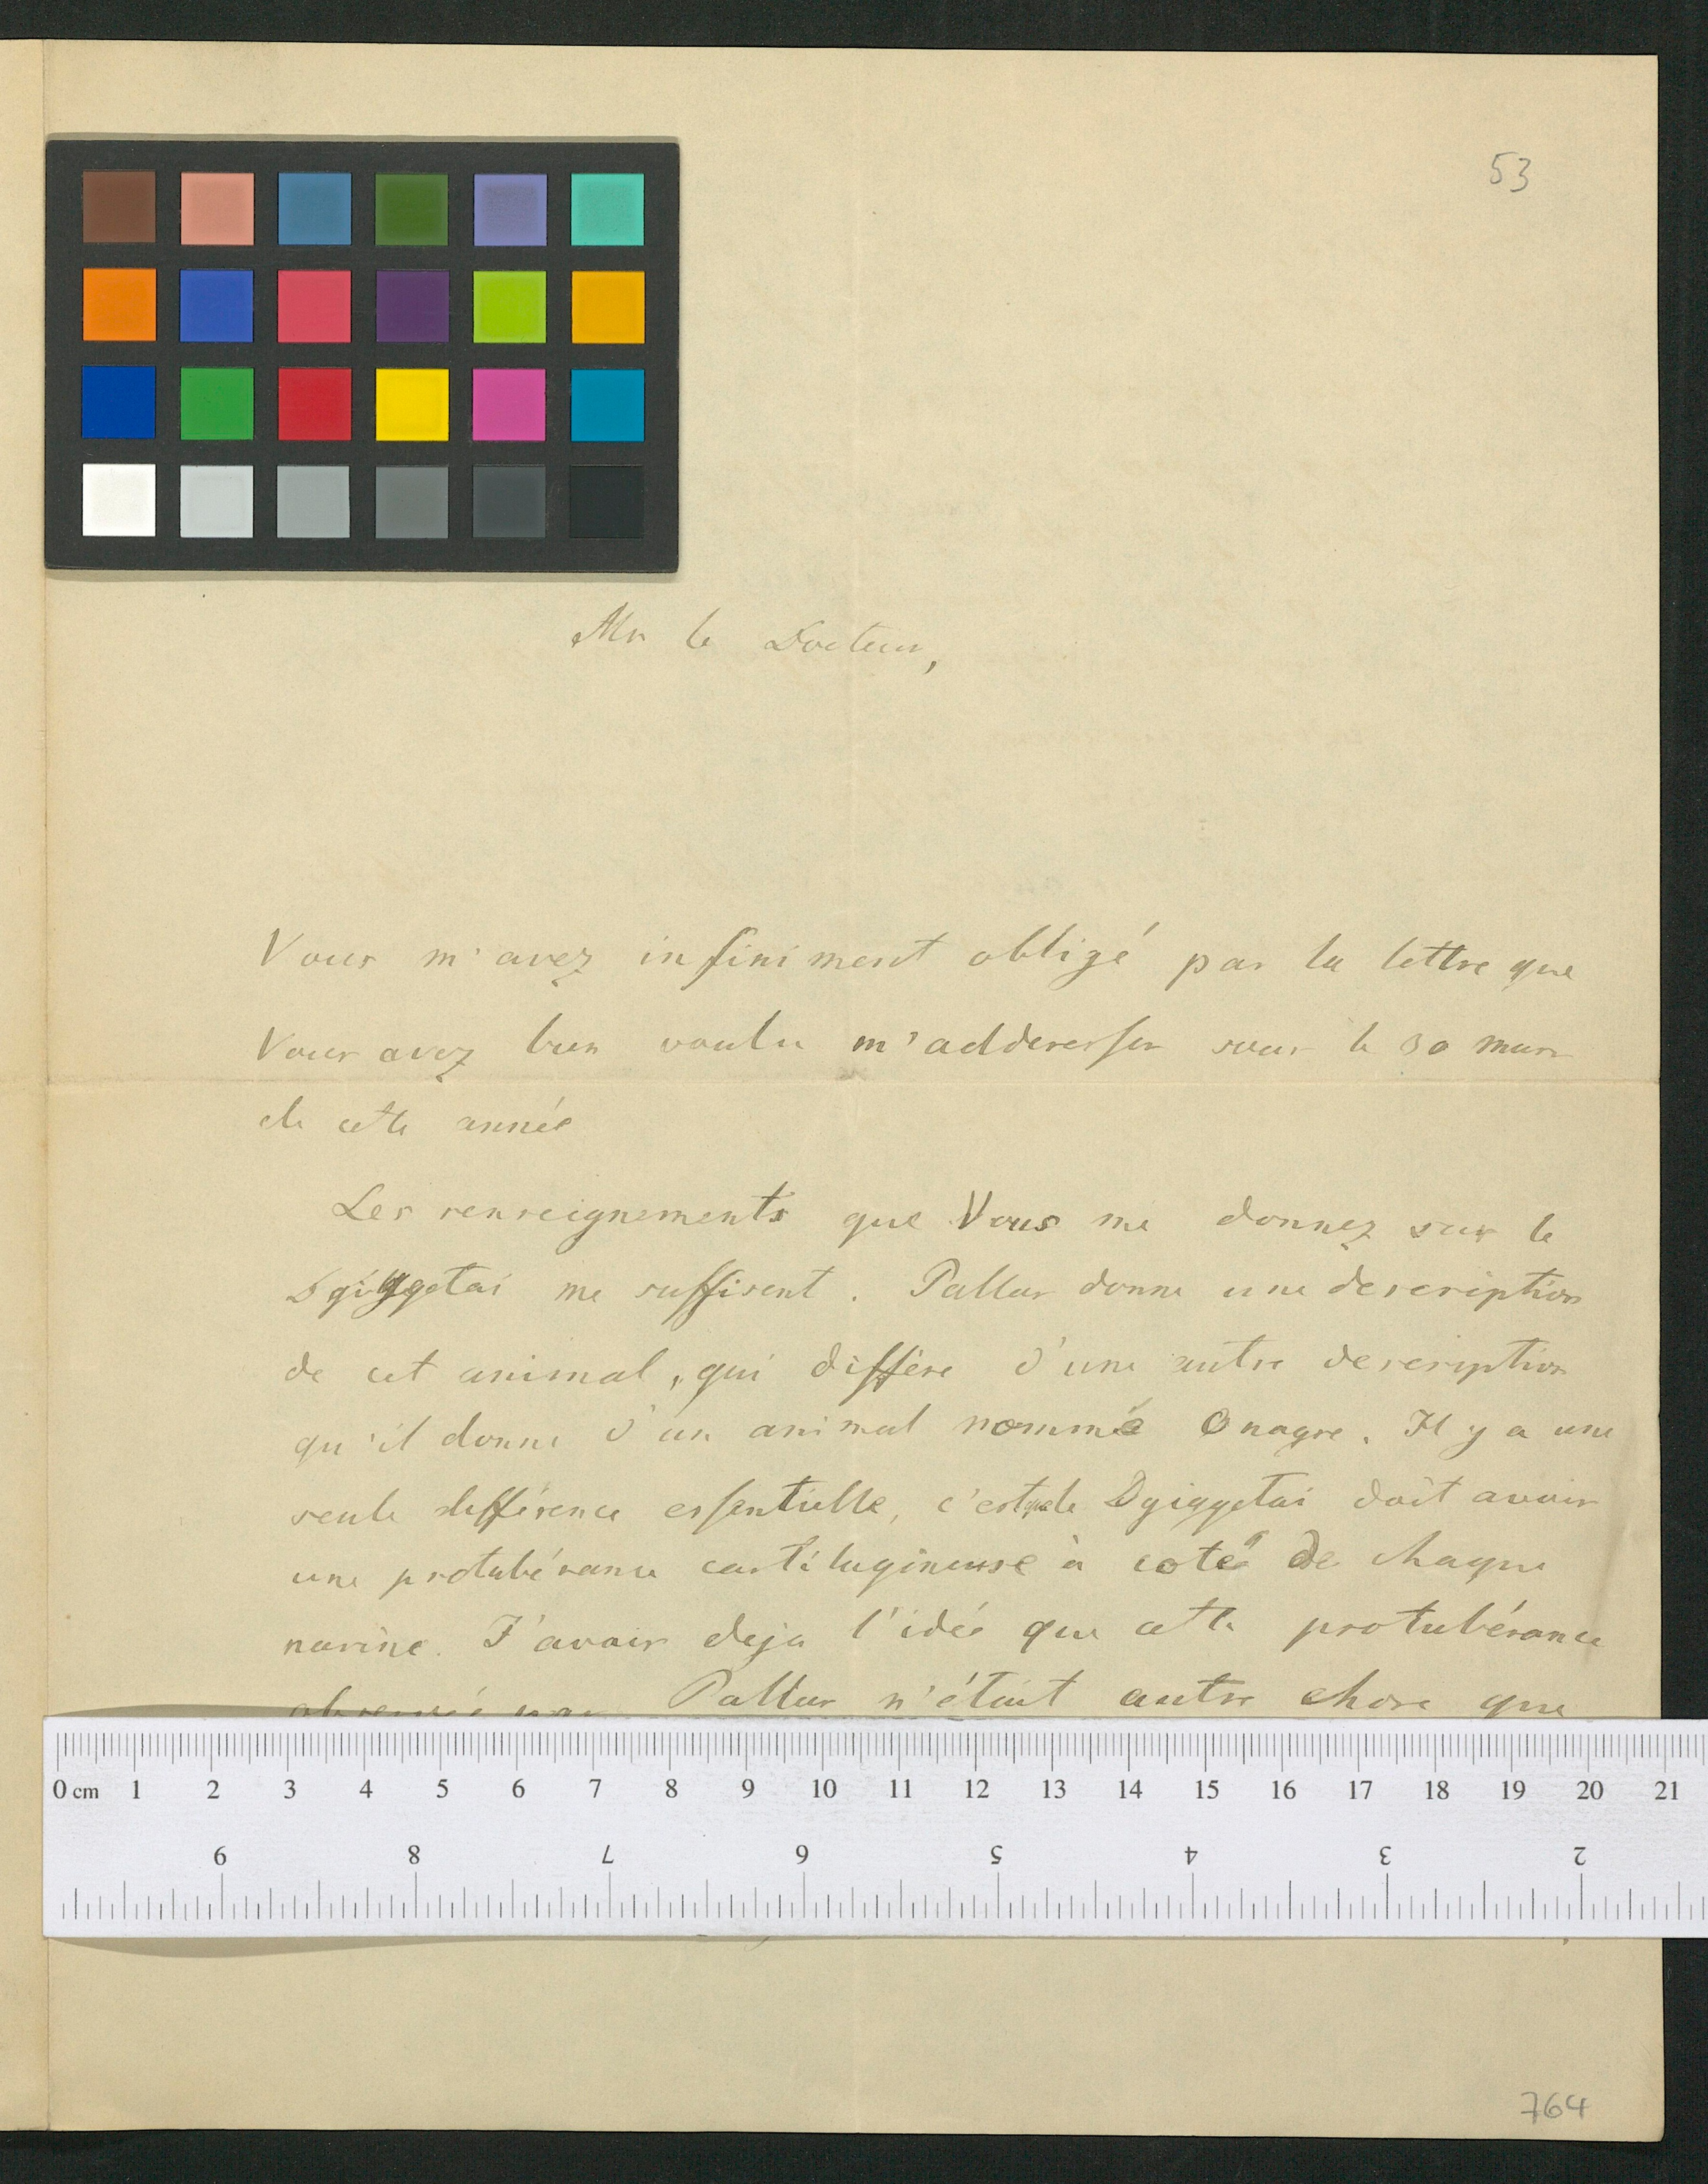 53
Mr le Docteur,
Vous m'avez infiniment obligé par la lettre que
Vous avez bien voulu m'adderesser sous le 30 mars
de cette année
Les renseignements que Vous me donnez sur le
Dgiggetai me suffisent. Pallas donne une description
de cet animal, qui diffère d'une autre description
qu'il donne d'un animal nommé Onagre. Il y a une
seule différence essentielle, c'est que le Dgiggetai doit avoir
une protubérance cartilugineuse à coté de chaque
narine. J'avais deja l'idée que cette protubérance
observée par Pallas n'était autre chose que
0 cm 1 2 3 4 5 6 7 8 9 10 11 12 13 14 15 16 17 18 19 20 21
9 8 7 6 5 4 3 2
764